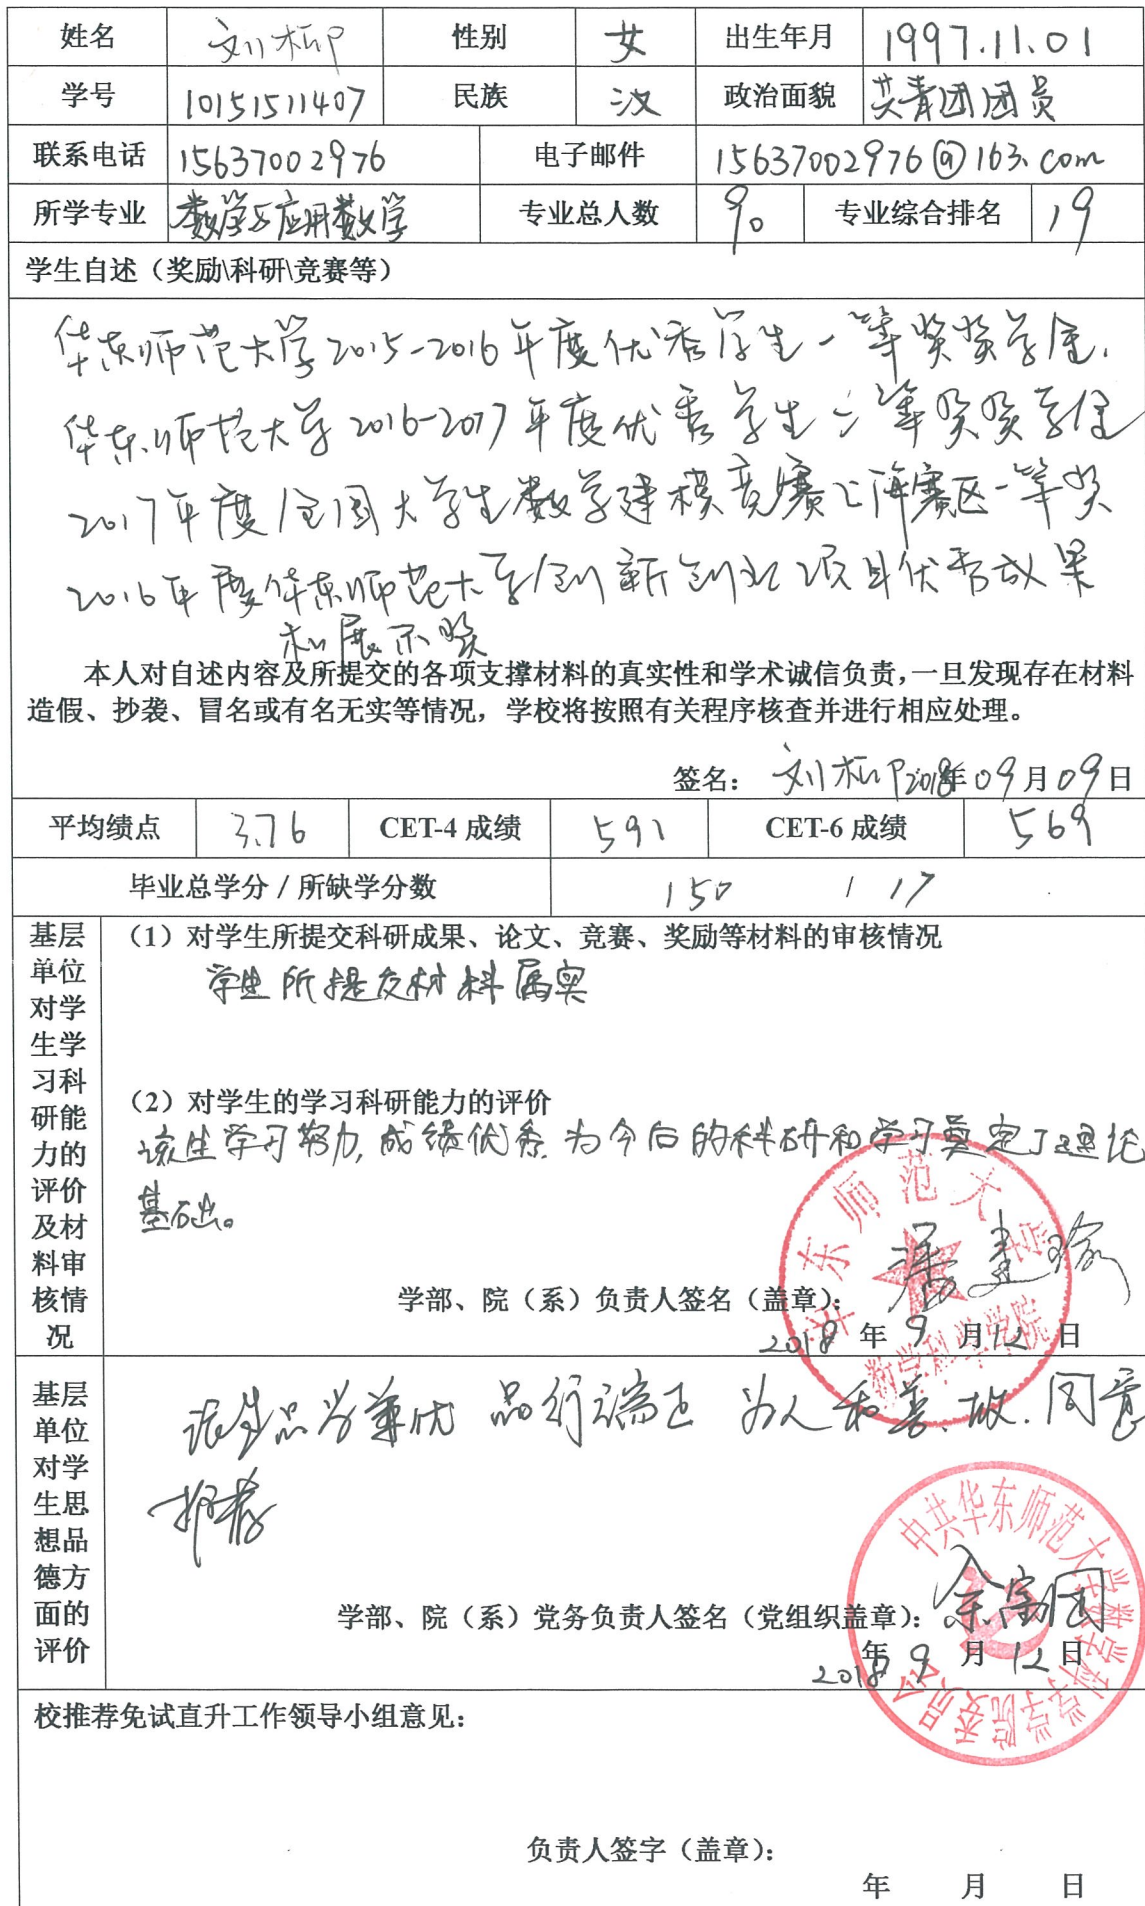 姓名 刘 性别 女 出生年月 1997.11.01
学号 10151511407 民族 汉 政治面貌 共青团团员
联系电话 15637002976 电子邮件 15637002976@163.com
所学专业 数学与应用数学 专业总人数 90 专业综合排名 19
学生自述（奖励\科研\竞赛等）
华东师范大学2015-2016年度优秀学生一等奖奖学金.
华东师范大学2016-2017年度优秀学生二等奖奖学金
2017年度全国大学生数学建模竞赛上海赛区一等奖
2016年度华东师范大学创新创业项目优秀成果
和展示奖
本人对自述内容及所提交的各项支撑材料的真实性和学术诚信负责，一旦发现存在材料
造假、抄袭、冒名或有名无实等情况，学校将按照有关程序核查并进行相应处理。
签名： 刘 2018年09月09日
平均绩点 3.76 CET-4 成绩 591 CET-6 成绩 569
毕业总学分 / 所缺学分数 150 / 17
基层
单位
对学
生学
习科
研能
力的
评价
及材
料审
核情
况
（1）对学生所提交科研成果、论文、竞赛、奖励等材料的审核情况
学生所提交材料属实
（2）对学生的学习科研能力的评价
该生学习努力,成绩优秀.为今后的科研和学习奠定了理论
基础。
华东师范大学
数学科学学院
学部、院（系）负责人签名（盖章）：
2018 年 9 月 12 日
基层
单位
对学
生思
想品
德方
面的
评价
该生品学兼优 品行端正 为人和善、故.同意
推荐
中共华东师范大学数学科学学院委员会
学部、院（系）党务负责人签名（党组织盖章）：
2018 年 9 月 12 日
校推荐免试直升工作领导小组意见：
负责人签字（盖章）：
年 月 日